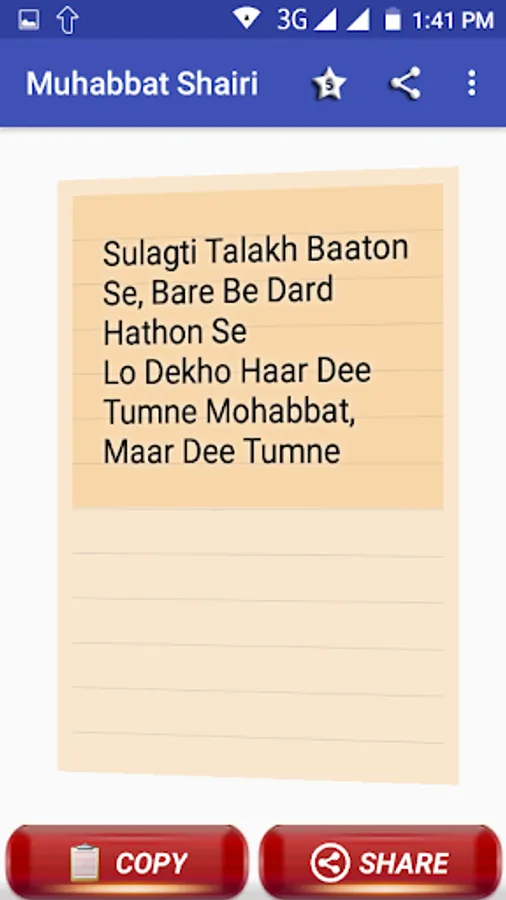 3G 1:41 PM
Muhabbat Shairi
S
Sulagti Talakh Baaton
Se, Bare Be Dard
Hathon Se
Lo Dekho Haar Dee
Tumne Mohabbat,
Maar Dee Tumne
COPY SHARE